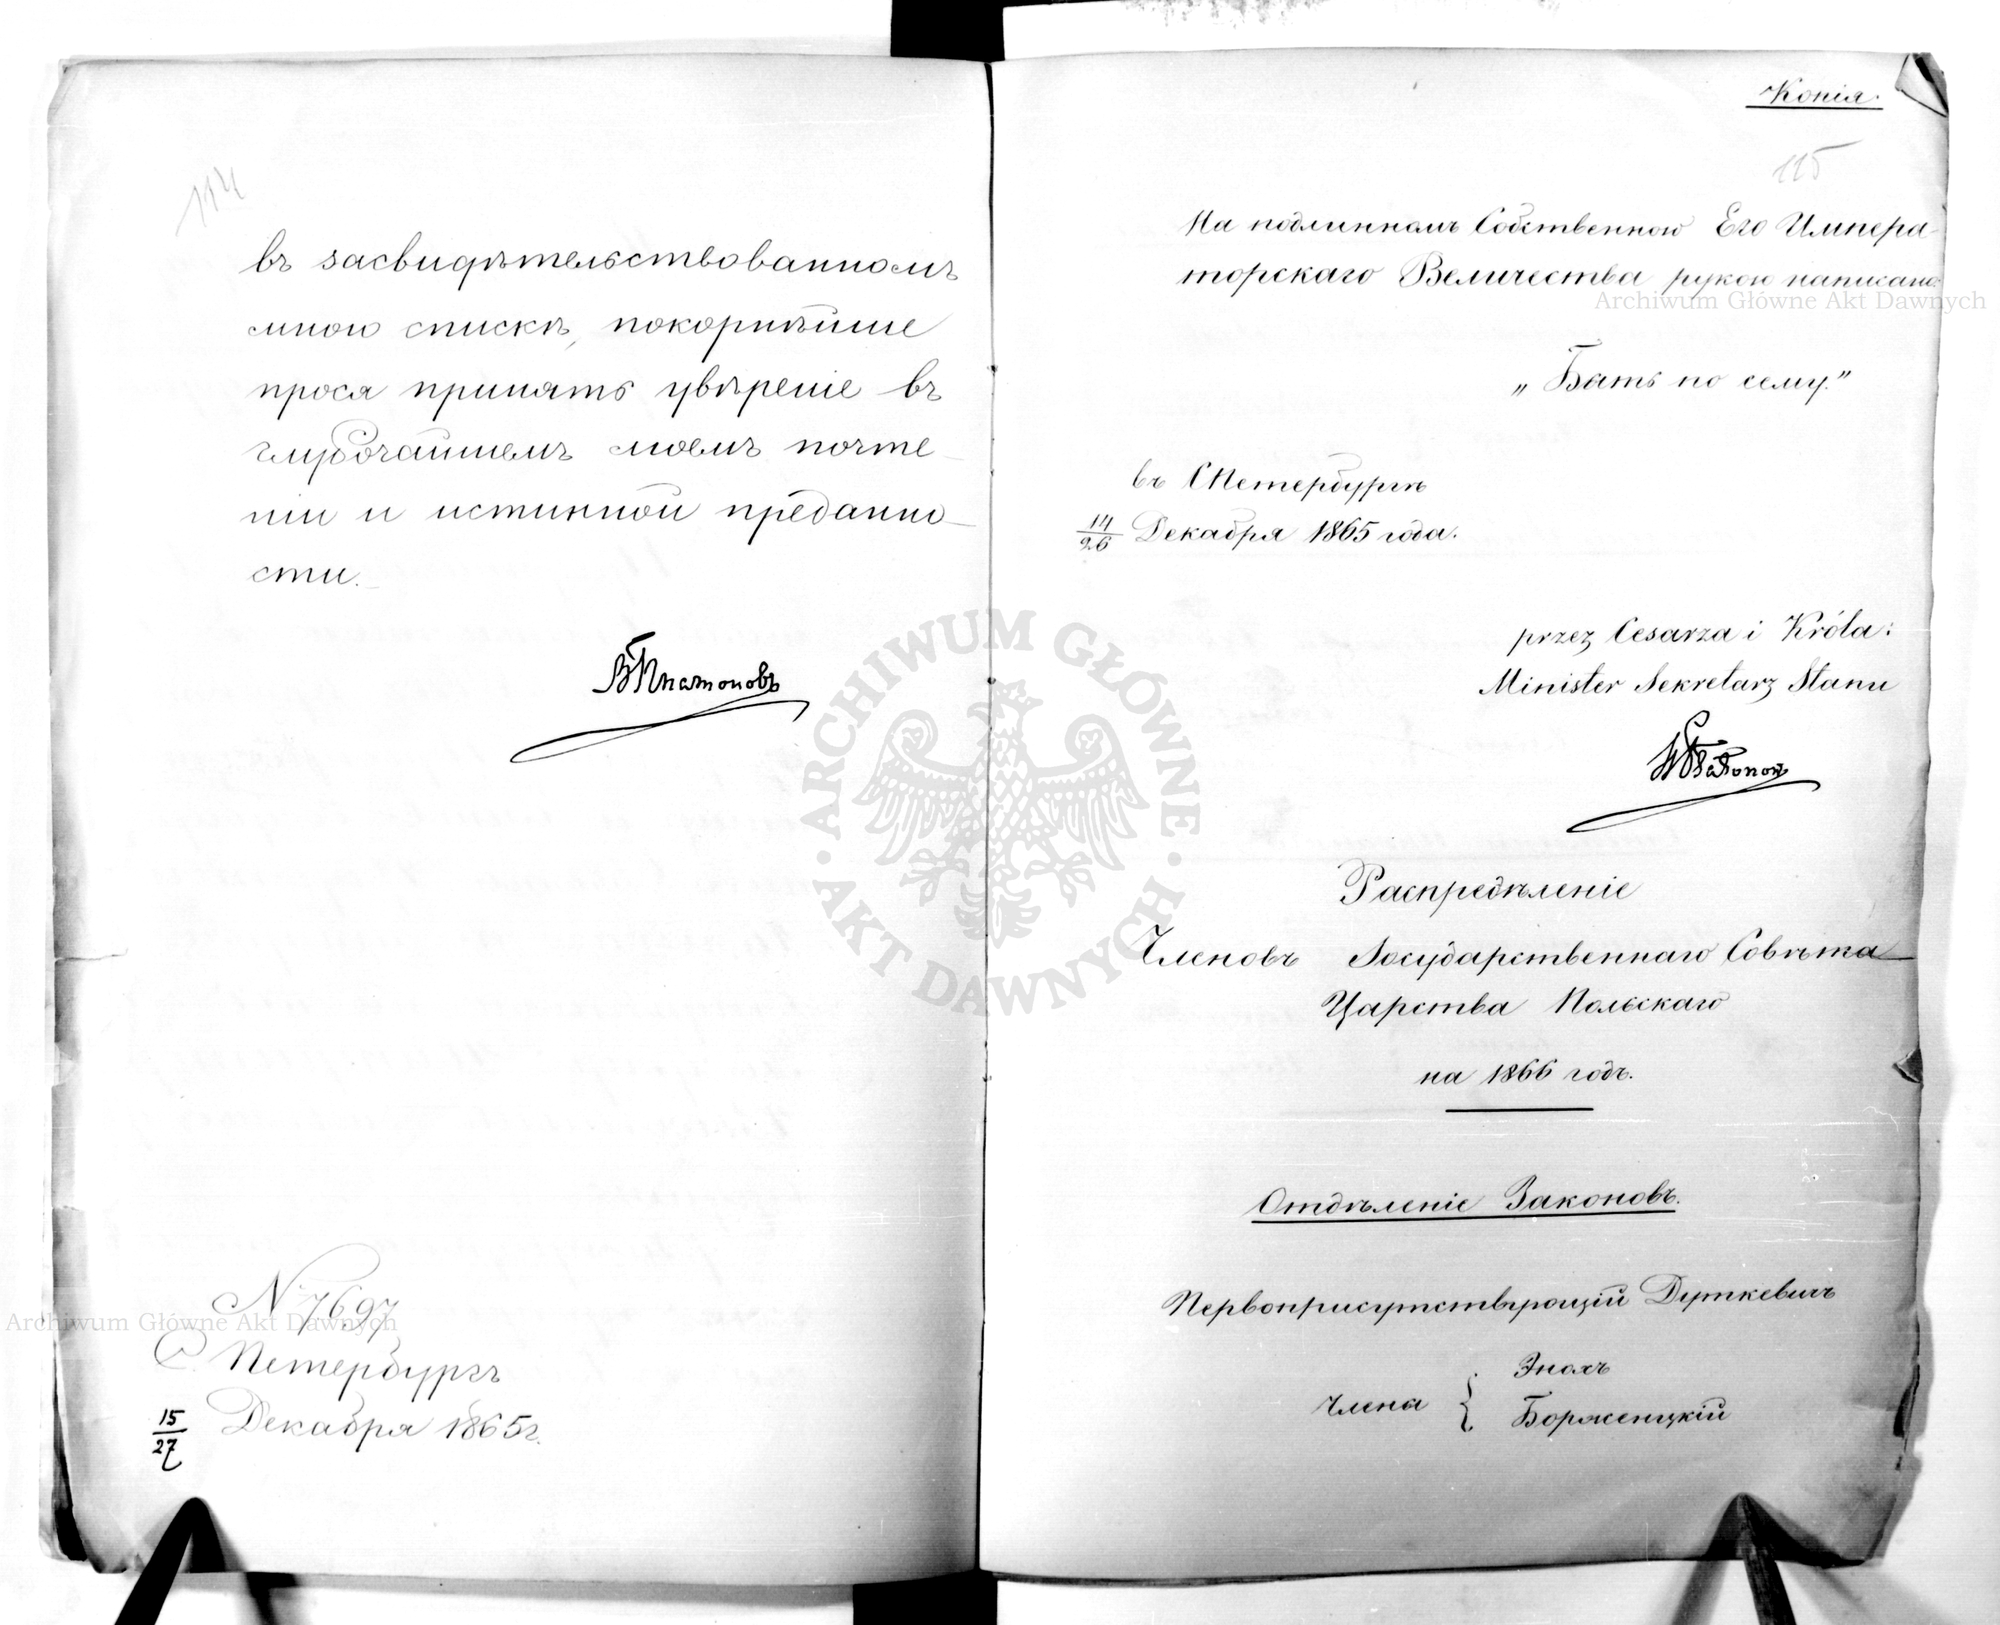 114
въ засвидѣтельствованномъ
мною спискѣ, покорнѣйше
прося принять увѣреніе въ
глубочайшемъ моемъ почте-
ніи и истинной преданно-
сти.
ВПлатоновъ
N 7697
С. Петербургъ
15/27 Декабря 1865 г.
Копія.
115
На подлинномъ Собственною Его Импера-
торскаго Величества рукою написано:
„Быть по сему."
въ СПетербургѣ
14/26 Декабря 1865 года.
przez Cesarza i Króla:
Minister Sekretarz Stanu
Распредѣленіе
Членовъ Государственнаго Совѣта
Царства Польскаго
на 1866 годъ.
Отдѣленіе Законовъ.
Первоприсутствующій Дуткевичъ
Члена { Энохъ
Борженцкій
Archiwum Główne Akt Dawnych
Archiwum Główne Akt Dawnych
ARCHIWUM GŁÓWNE
AKT DAWNYCH